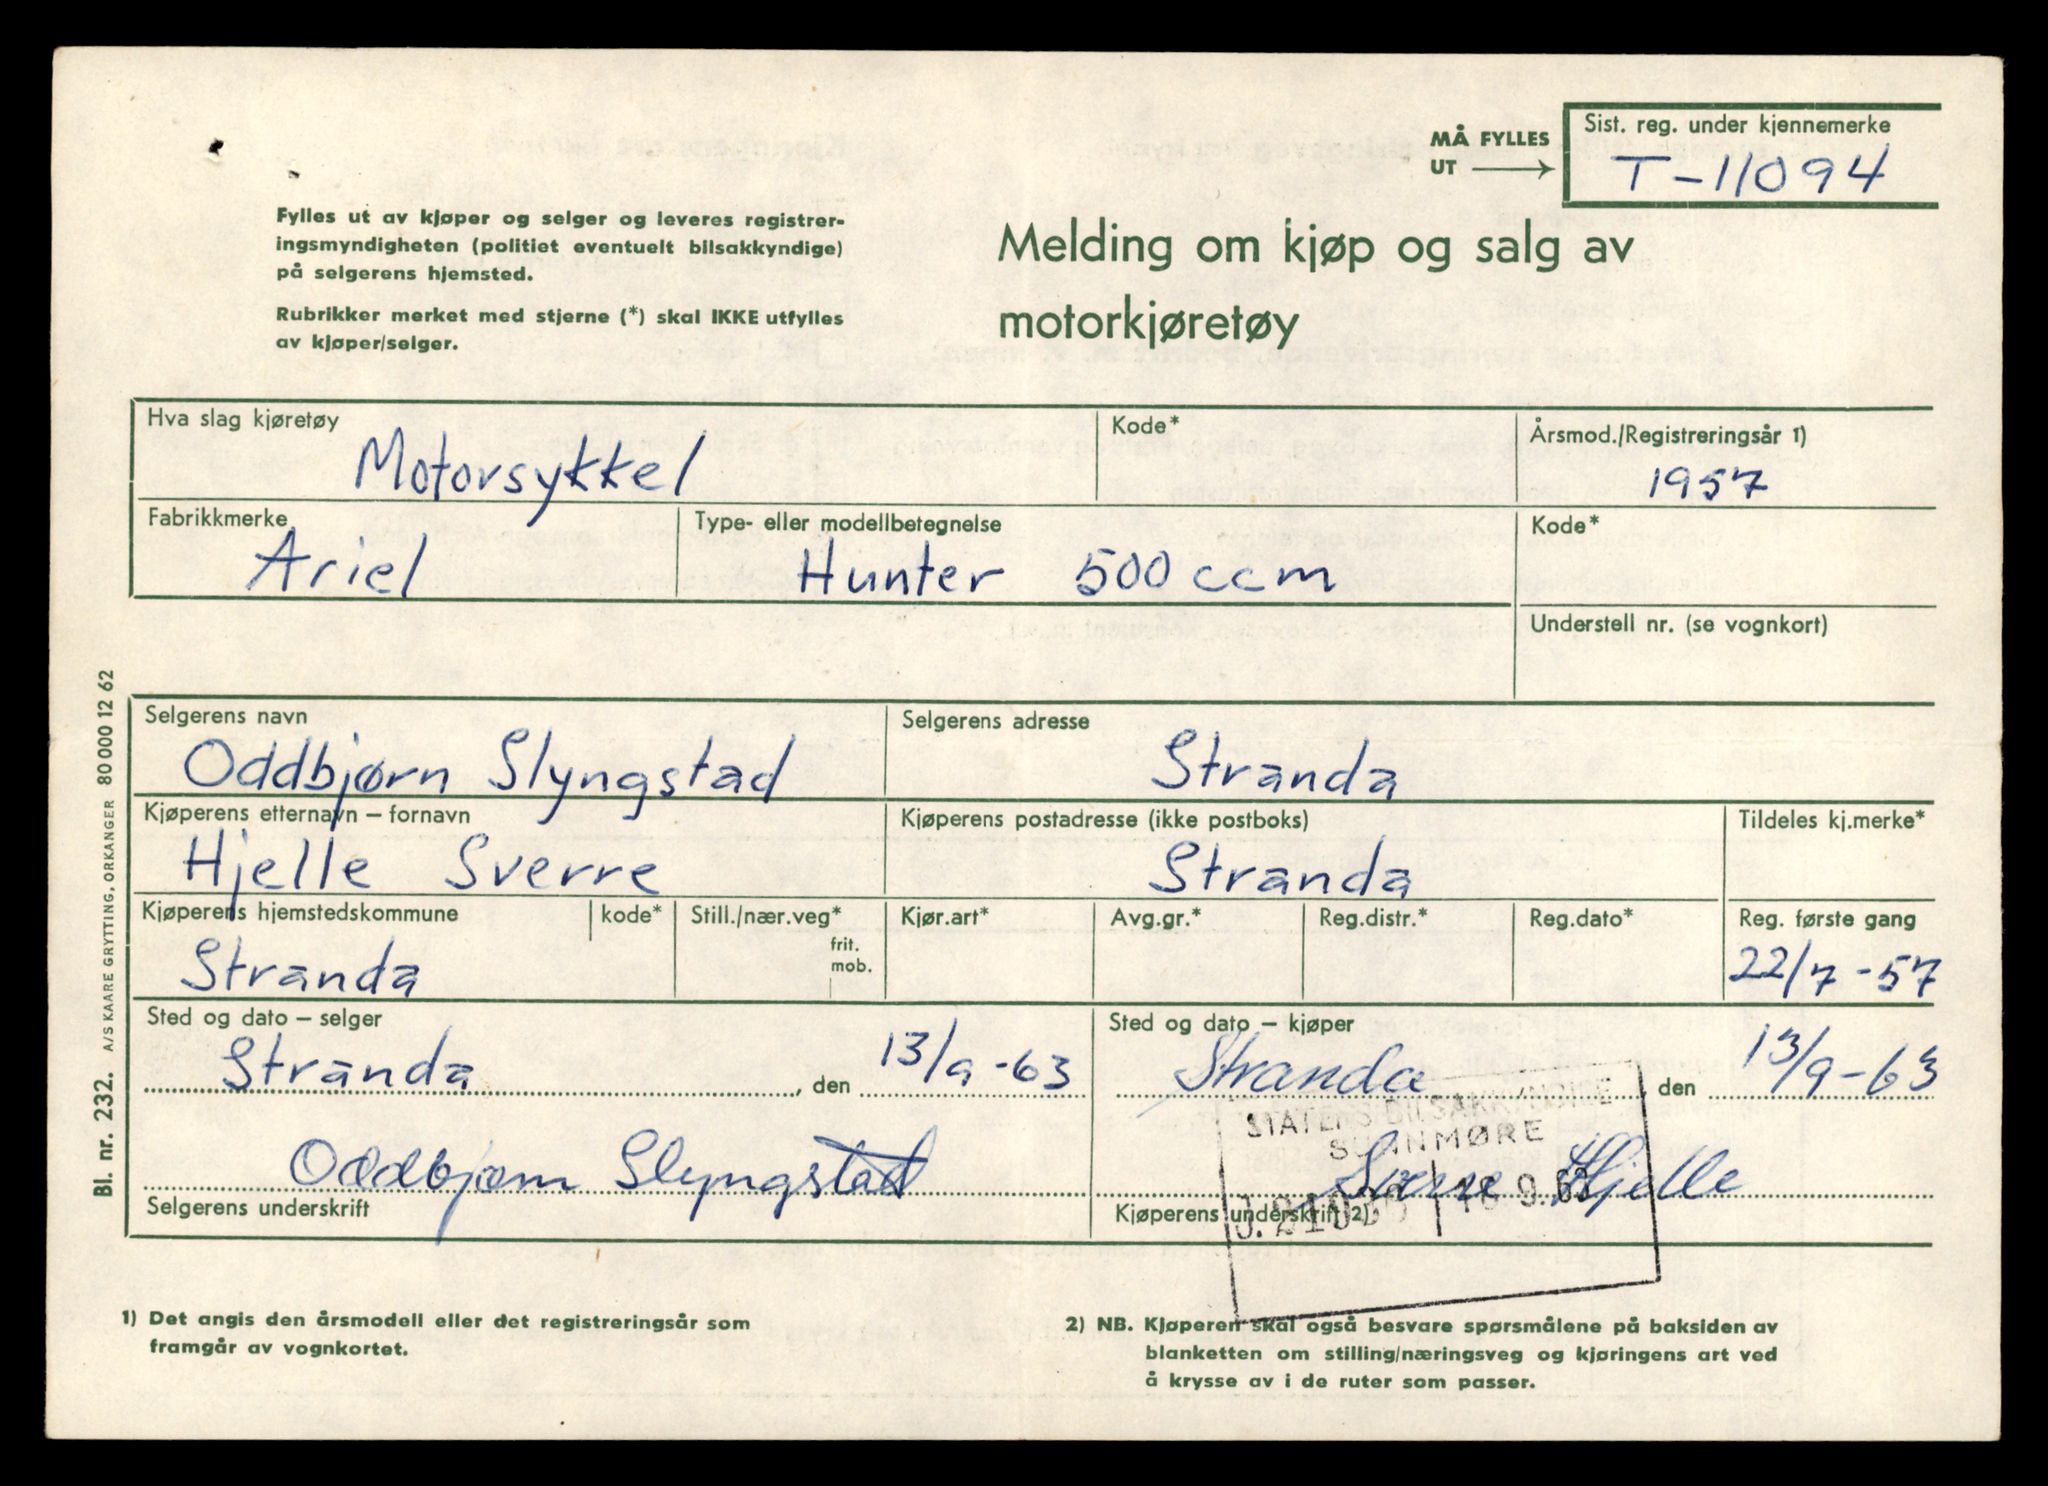 MÅ FYLLES
UT
Sist. reg. under kjennemerke
T-11094
Fylles ut av kjøper og selger og leveres registrer-
ingsmyndigheten (politiet eventuelt bilsakkyndige)
på selgerens hjemsted.
Rubrikker merket med stjerne (*) skal IKKE utfylles
av kjøper/selger.
Melding om kjøp og salg av
motorkjøretøy
Hva slag kjøretøy
Motorsykkel
Kode*
Årsmod./Registreringsår 1)
1957
Fabrikkmerke
Ariel
Type- eller modellbetegnelse
Hunter 500 ccm
Kode*
Understell nr. (se vognkort)
Selgerens navn
Oddbjørn Slyngstad
Selgerens adresse
Stranda
Kjøperens etternavn – fornavn
Hjelle Sverre
Kjøperens postadresse (ikke postboks)
Stranda
Tildeles kj.merke*
Kjøperens hjemstedskommune
Stranda
kode*
Still./nær.veg*
frit.
mob.
Kjør.art*
Avg.gr.*
Reg.distr.*
Reg.dato*
Reg. første gang
22/7-57
Sted og dato – selger
Stranda, den 13/9-63
Sted og dato – kjøper
Stranda, den 13/9-63
STATENS BILSAKKYNDIGE
SUNNMØRE
Oddbjørn Slyngstad
Selgerens underskrift
Sverre Hjelle
Kjøperens underskrift 2)
9.63
1) Det angis den årsmodell eller det registreringsår som
framgår av vognkortet.
2) NB. Kjøperen skal også besvare spørsmålene på baksiden av
blanketten om stilling/næringsveg og kjøringens art ved
å krysse av i de ruter som passer.
Bl. nr. 232. A/S KAARE GRYTTING, ORKANGER 80 000 12 62